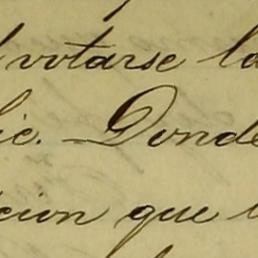 votarse la
lic. Donde
cion que